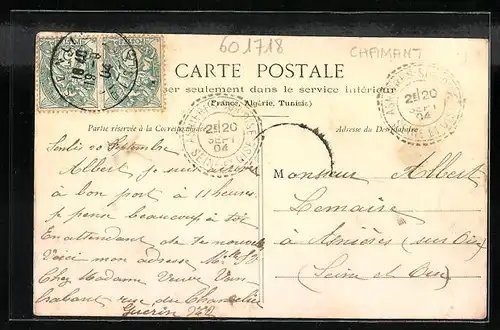 601718
CHAMANT
CARTE POSTALE
ser seulement dans le service intérieur
(France, Algérie, Tunisie)
Partie réservée à la Correspondance
Adresse du Destinataire
2E 20
SEPT
04
SEINE-ET-OISE
2E 20
SEPT
04
Senlis 20 Septembre
Albert je suis arrivé
à bon port à 11 heures
je pense beaucoup à toi
En attendant de te nouvelle
Voici mon adresse Mlle
Chez Madame Veuve Van
brabant rue du Chancelier
Guérin
Monsieur Albert
Lemaire
à Asnières (sur Oise)
(Seine et Oise)